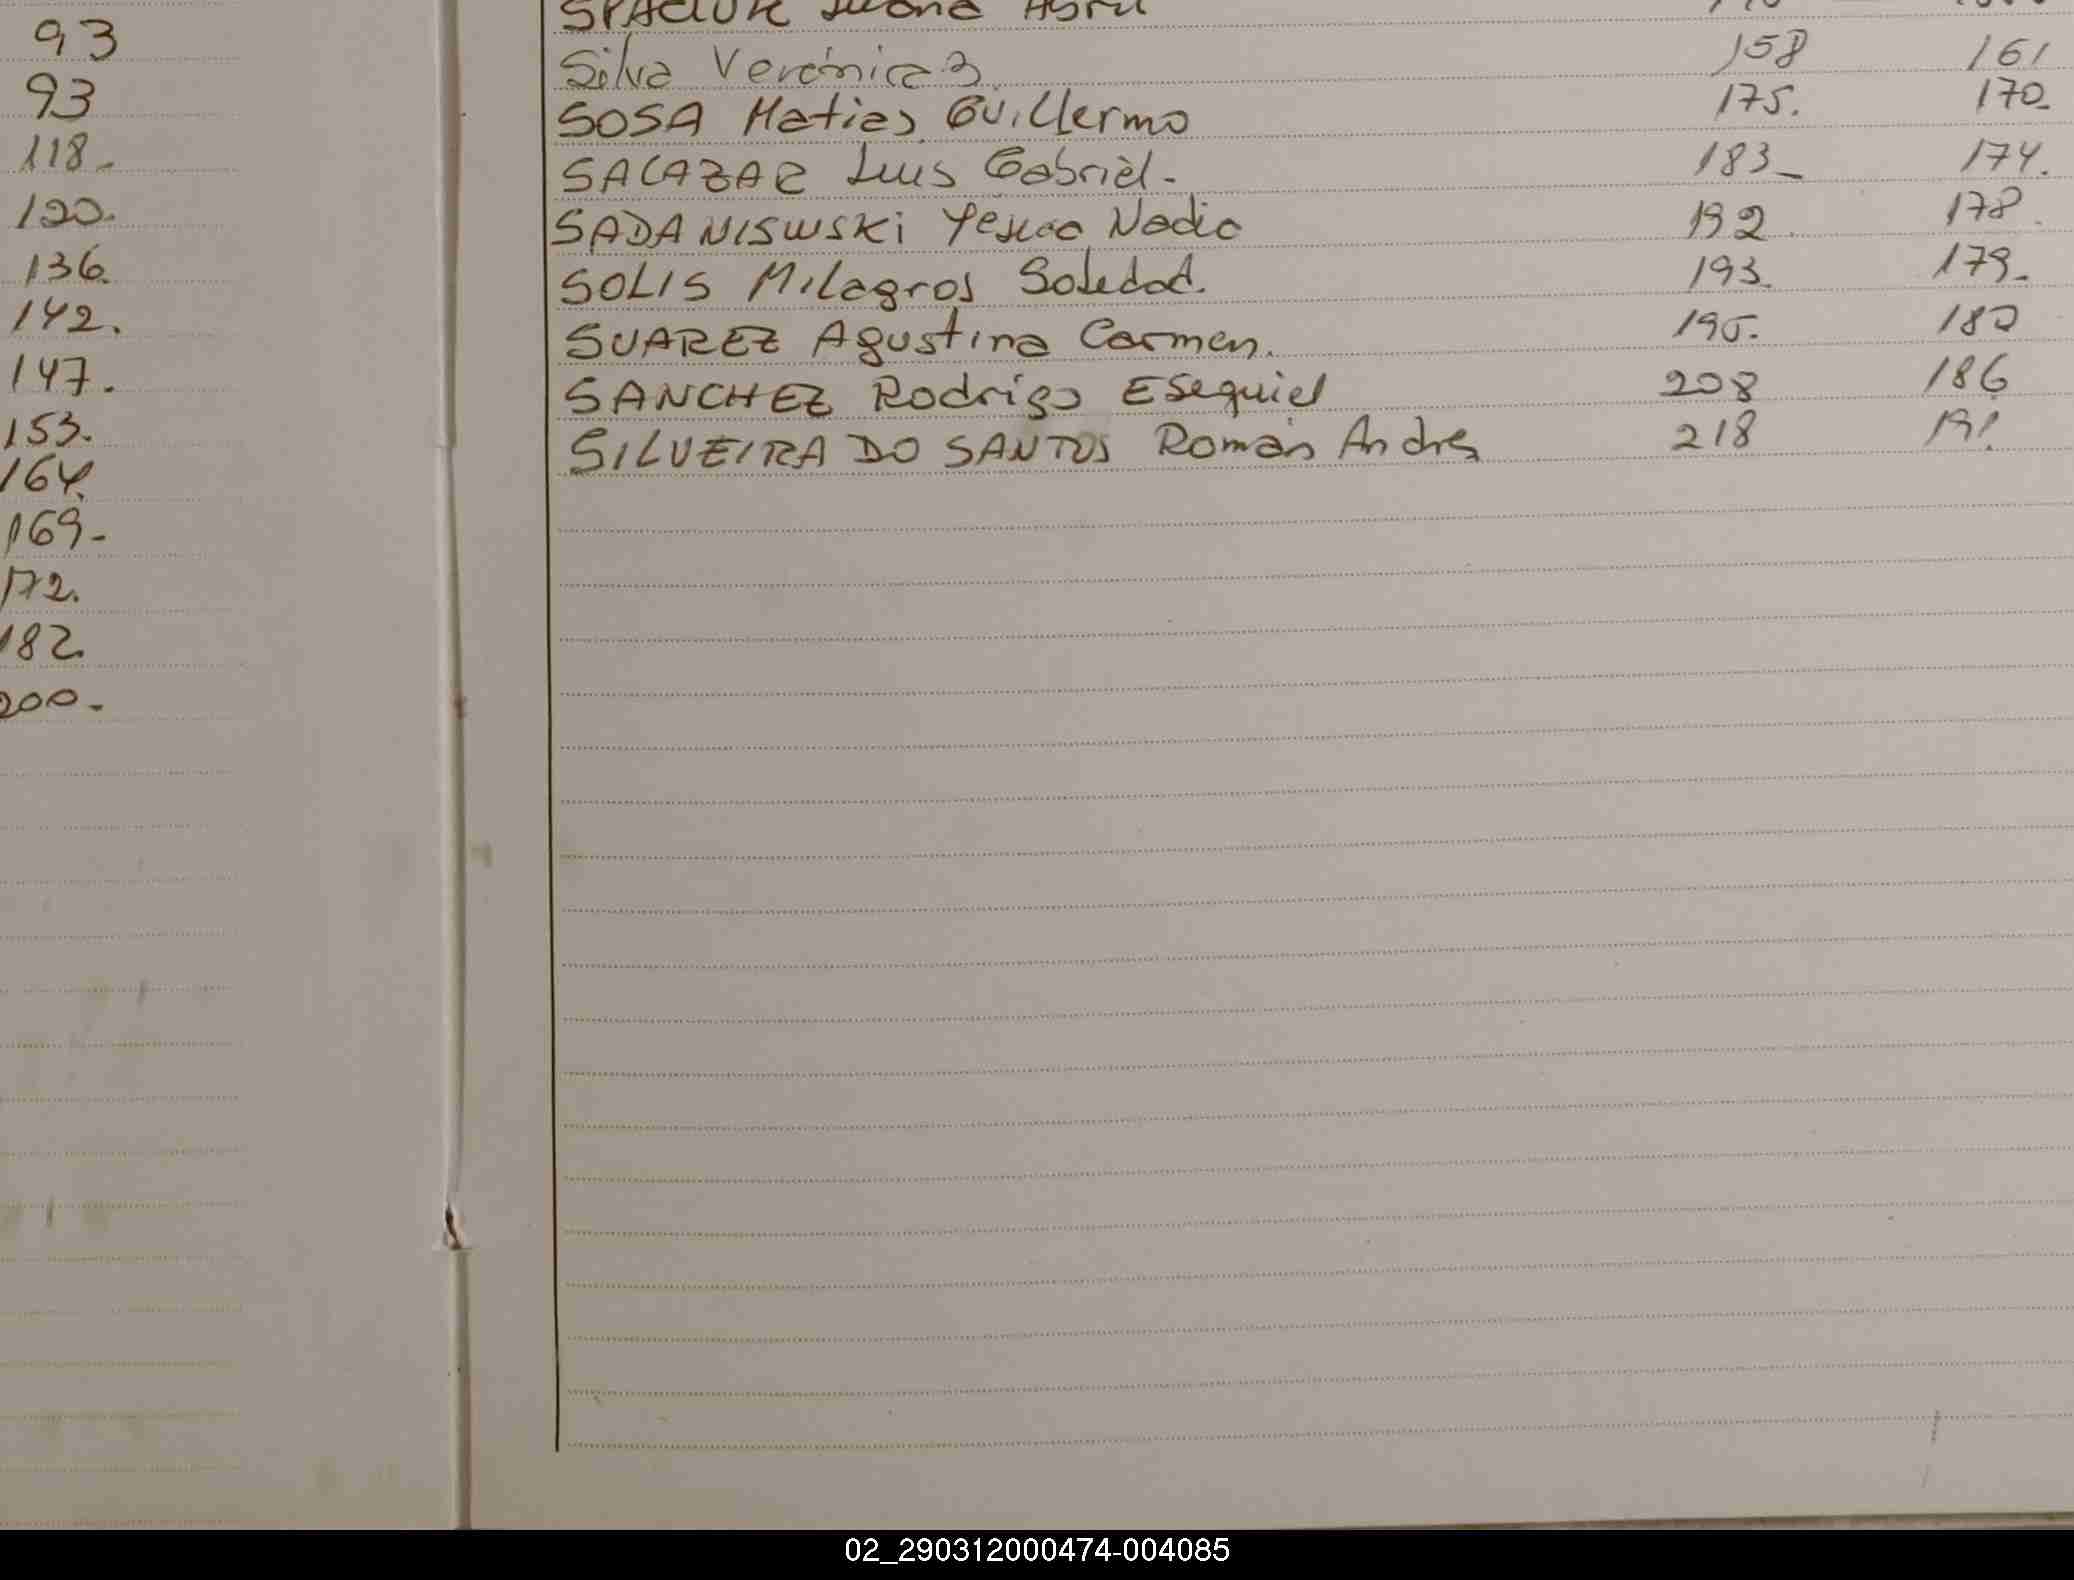 93
93
118-
120.
136.
142.
147.
153.
164.
169-
172.
182.
200.
Abril
Silva Verónica B 158 161
SOSA Matias Guillermo 175. 170.
SALAZAR Luis Gabriel. 183- 174.
SADANISWSKi Yesica Nadia 192. 178.
SOLIS Milagros Soledad. 193. 179.
SUAREZ Agustina Carmen. 195. 180
SANCHEZ Rodrigo ESequiel 208 186
SILVEIRA DO SANTOS Román Andres 218 191.
02_290312000474-004085